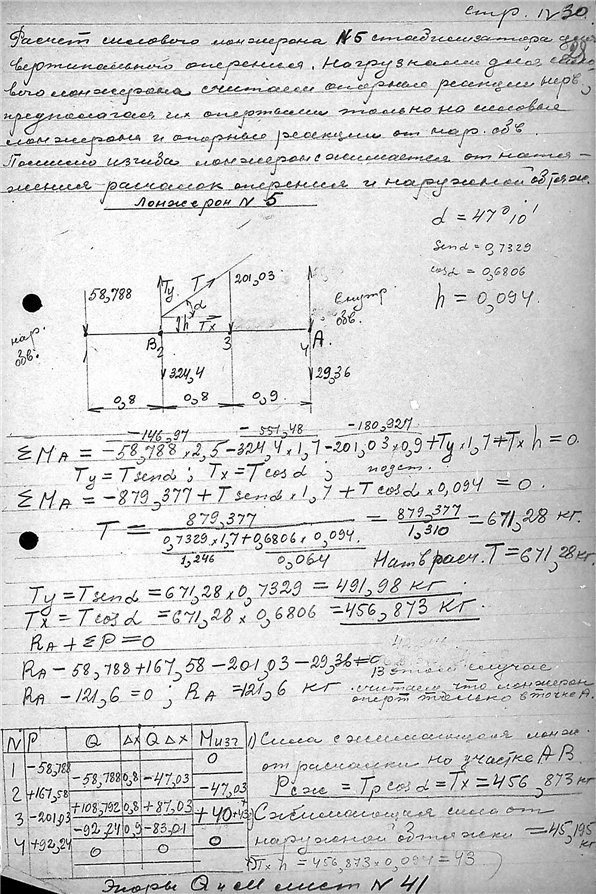 стр. N 30.
28
Расчет силового лонжерона №5 стабилизатора для
вертикального оперения. Нагрузками для сило-
вого лонжерона считаем опорные реакции нерв.,
предполагая их опертыми только на силовые
лонжерона и опорные реакции от нар. обв.
Помимо изгиба лонжерон сжимается от натя-
жения расчалок оперения и наружной обтяж.
Лонжерон N 5
α = 47°10'
Senα = 0,7329
cosα = 0,6806
h = 0,094.
58,788
Ty
T
α
201,03
внутр.
обв.
h
Tx
нар.
обв.
B 2
3
4
A
324,4
29,36
0,8
0,8
0,9
-146,97
-551,48
-180,927
ΣMA = -58,788×2,5-324,4×1,7-201,03×0,9+Ty×1,7+Tx h = 0.
Ty = T senα ; Tx = T cosα ; подст.
ΣMA = -879,377 + T senα × 1,7 + T cosα × 0,094 = 0.
T = 879,377 / 0,7329 × 1,7 + 0,6806 × 0,094 = 879,377 / 1,310 = 671,28 кг.
1,246
0,064
Нат. в расч. T = 671,28 кг.
Ty = T senα = 671,28 × 0,7329 = 491,98 кг.
Tx = T cosα = 671,28 × 0,6806 = 456,873 кг.
RA + ΣP = 0
RA - 58,788 + 167,58 - 201,03 - 29,36 = 0
RA - 121,6 = 0 ; RA = 121,6 кг
В этом случае
считаем, что лонжерон
оперт только в точке A.
N P Q Δx QΔx Mизг
0
1 -58,788
-58,788 0,8 -47,03
2 +167,58 -47,03
+108,792 0,8 +87,03
3 -201,03 +40 +43
-92,24 0,9 -83,01
4 +92,24 0
0 0
1) Сила сжимающая лонж.
от расчалки на участке AB
Pсж = Tp cosα = Tx = 456,873 кг
Сжимающая сила от
наружной обтяжки = 45,195 кг
Tx h = 456,873 × 0,094 = 43
Эпюры Q и M лист N 41